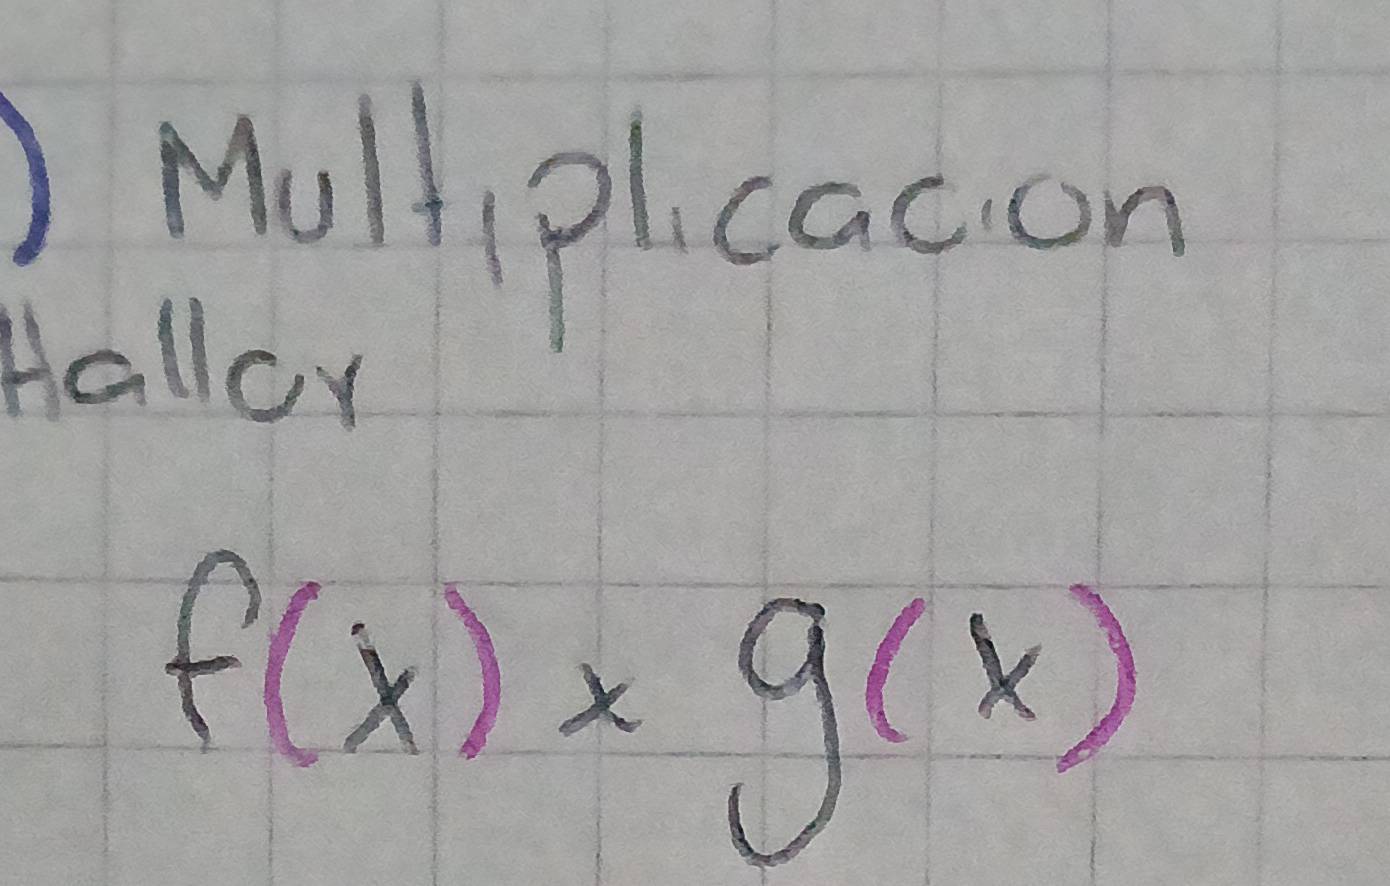 ) Multiplicacion
Hallar
f(x) x g(x)